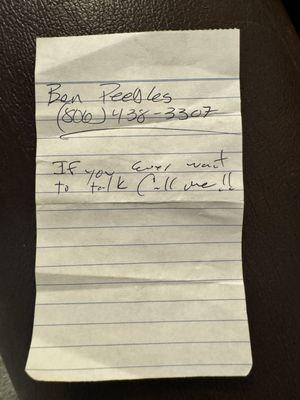 Ben Peebles
(806) 438-3307
If you ever want
to talk Call me!!